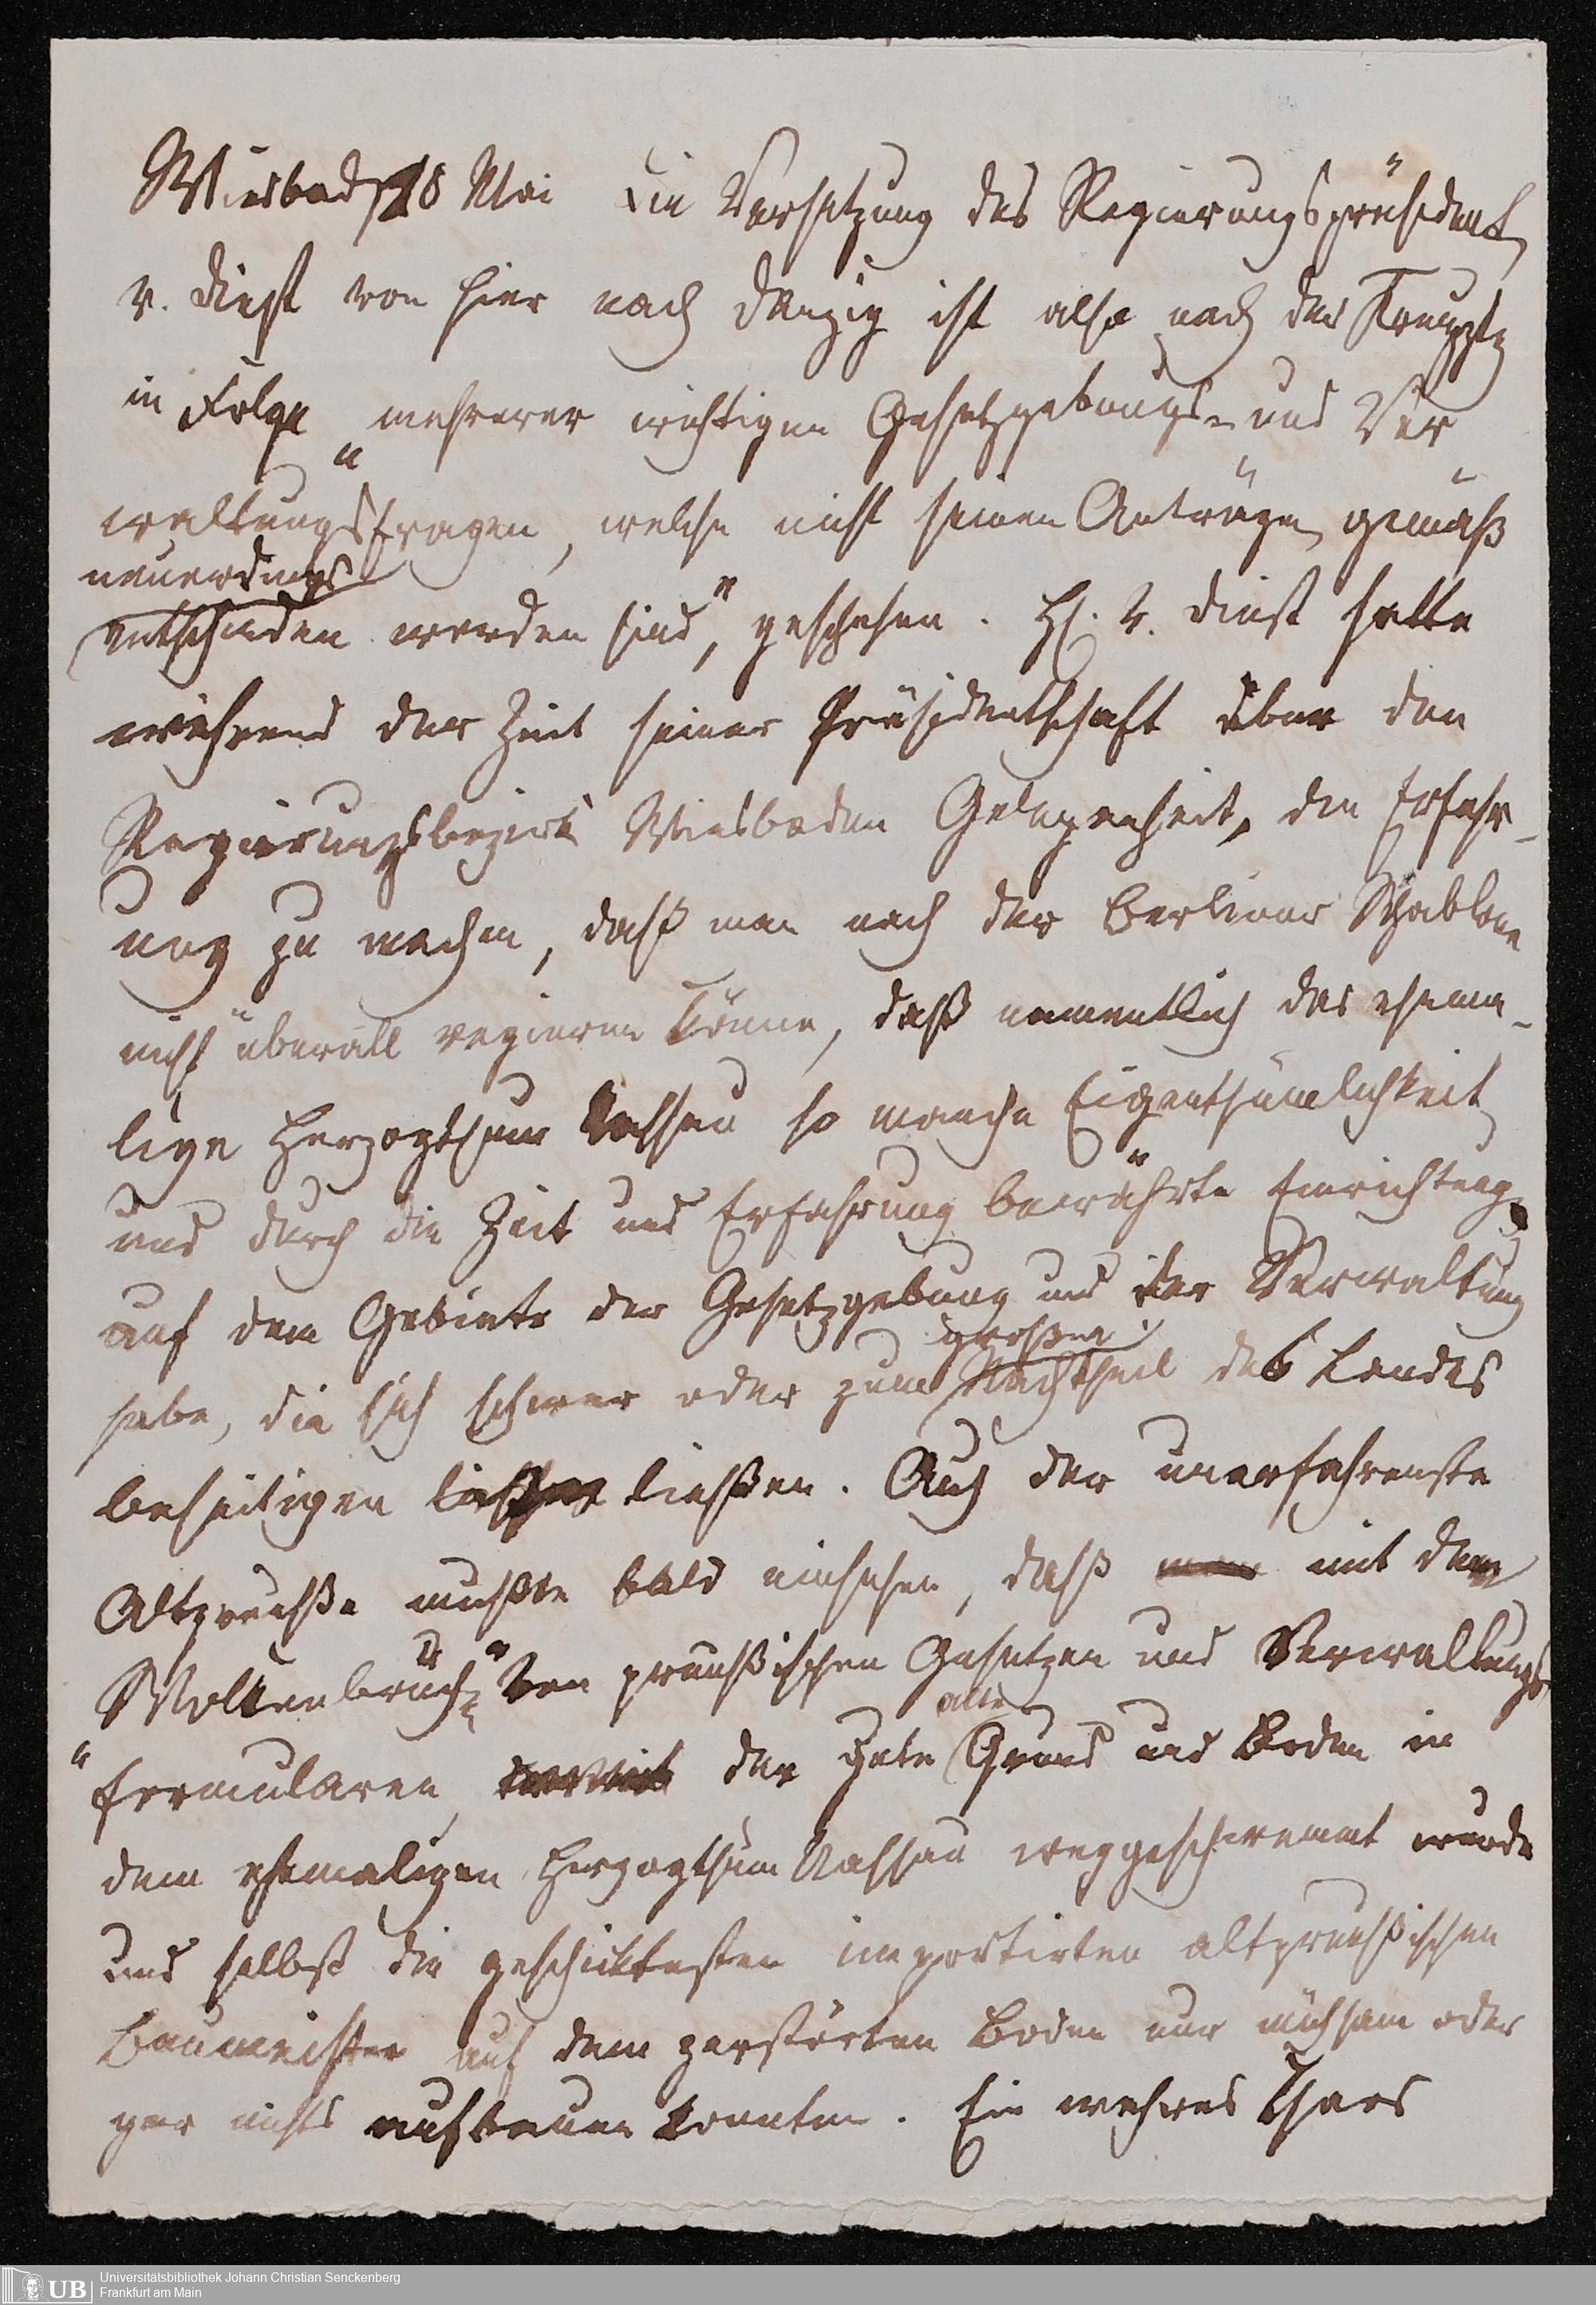 Wiesbad 28 Mai Die Versetzung des Regierungspräsident
v. Diest von hier nach Danzig ist also nach der Kreuzztg
in Folge „mehrerer wichtigen Gesetzgebungs- und Ver
waltungsfragen, welche nicht seinen Anträgen gemäß
neuerdings
entschieden worden sind“, geschehen. H. v. Diest hatte
während der Zeit seiner Präsidentschaft über den
Regierungsbezirk Wiesbaden Gelegenheit, die Erfahr-
ung zu machen, daß man nach der Berliner Schablone
nicht überall regieren könne, daß namentlich das ehema-
lige Herzogthum Nassau so manche Eigenthümlichkeit
und durch die Zeit und Erfahrung bewährte Einrichtung
auf dem Gebiete der Gesetzgebung und der Verwaltung
großen
habe, die sich schwer oder zum Nachtheil des Landes
beseitigen ließen. Auch der unerfahrenste
Altpreuße mußte bald einsehen, daß man mit dem
„Wolkenbruch“ von preußischen Gesetzen und Verwaltungs
alte
formularen der gute Grund und Boden in
dem ehemaligen Herzogthum Nassau weggeschwemmt wurde
und selbst die geschicktesten importirten altpreußischen
Baumeister auf dem zerstörten Boden nur mühsam oder
gar nichts aufbauen konnten. Ein wahres Chaos
Universitätsbibliothek Johann Christian Senckenberg
Frankfurt am Main
UB